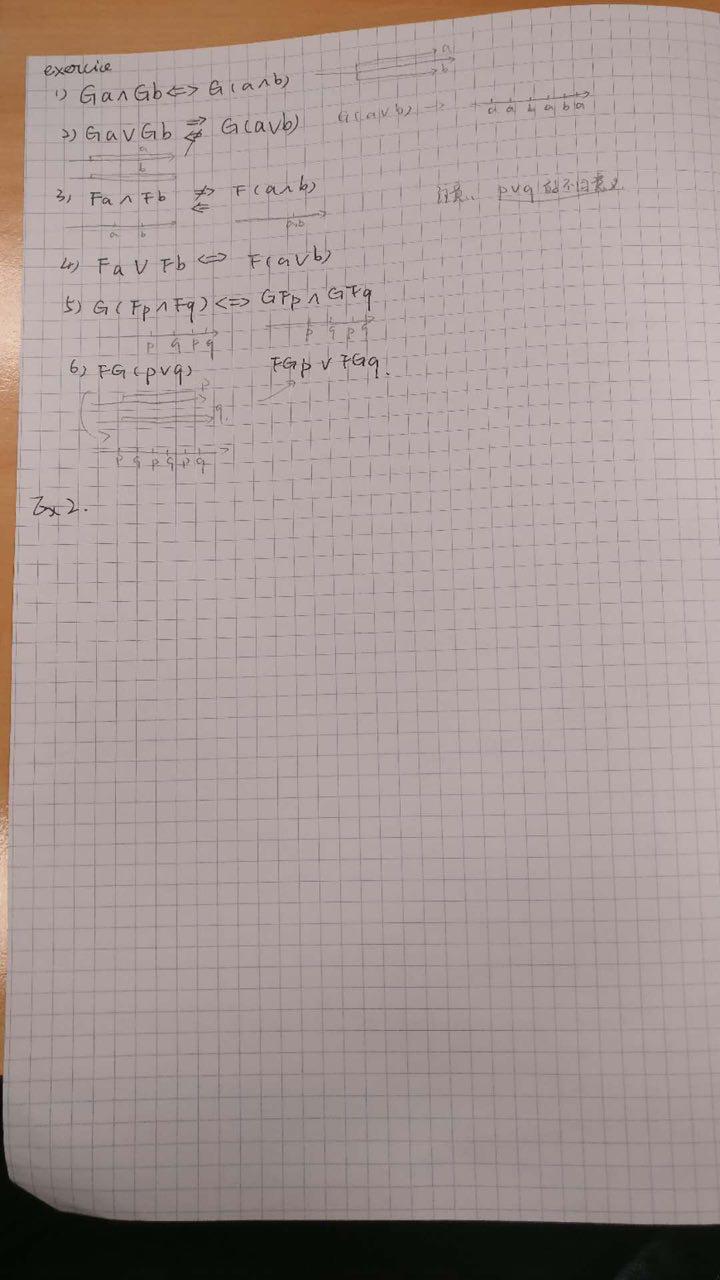 exercice
1) Ga∧Gb⇔G(a∧b) a b
2) Ga∨Gb ⇒ ⇍ G(a∨b) G(a∨b) → a a b a b a
a
b
3) Fa∧Fb ⇏ ⇐ F(a∧b) 注意. p∨q 的不同意义
a b a,b
4) Fa∨Fb⇔F(a∨b)
5) G(Fp∧Fq)⇔GFp∧GFq
p q p q p q p q
6) FG(p∨q) FGp∨FGq.
p
q.
p q p q p q
Ex2.